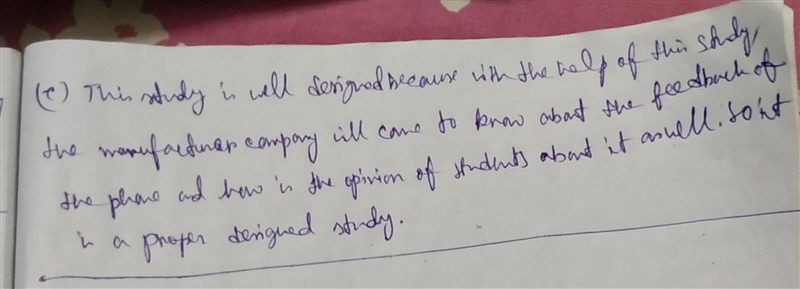 (c) This study is well designed because with the help of this study,
the manufacturer company will come to know about the feedback of
the phone and how is the opinion of students about it as well. So it
is a proper designed study.